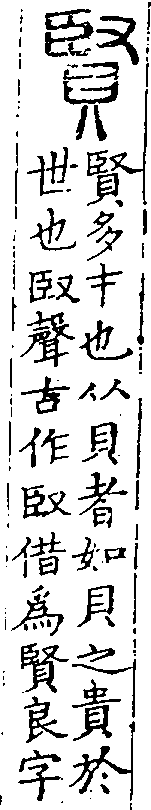 賢
賢多才也从貝者如貝之貴於
世也臤聲古作臤借為賢良字